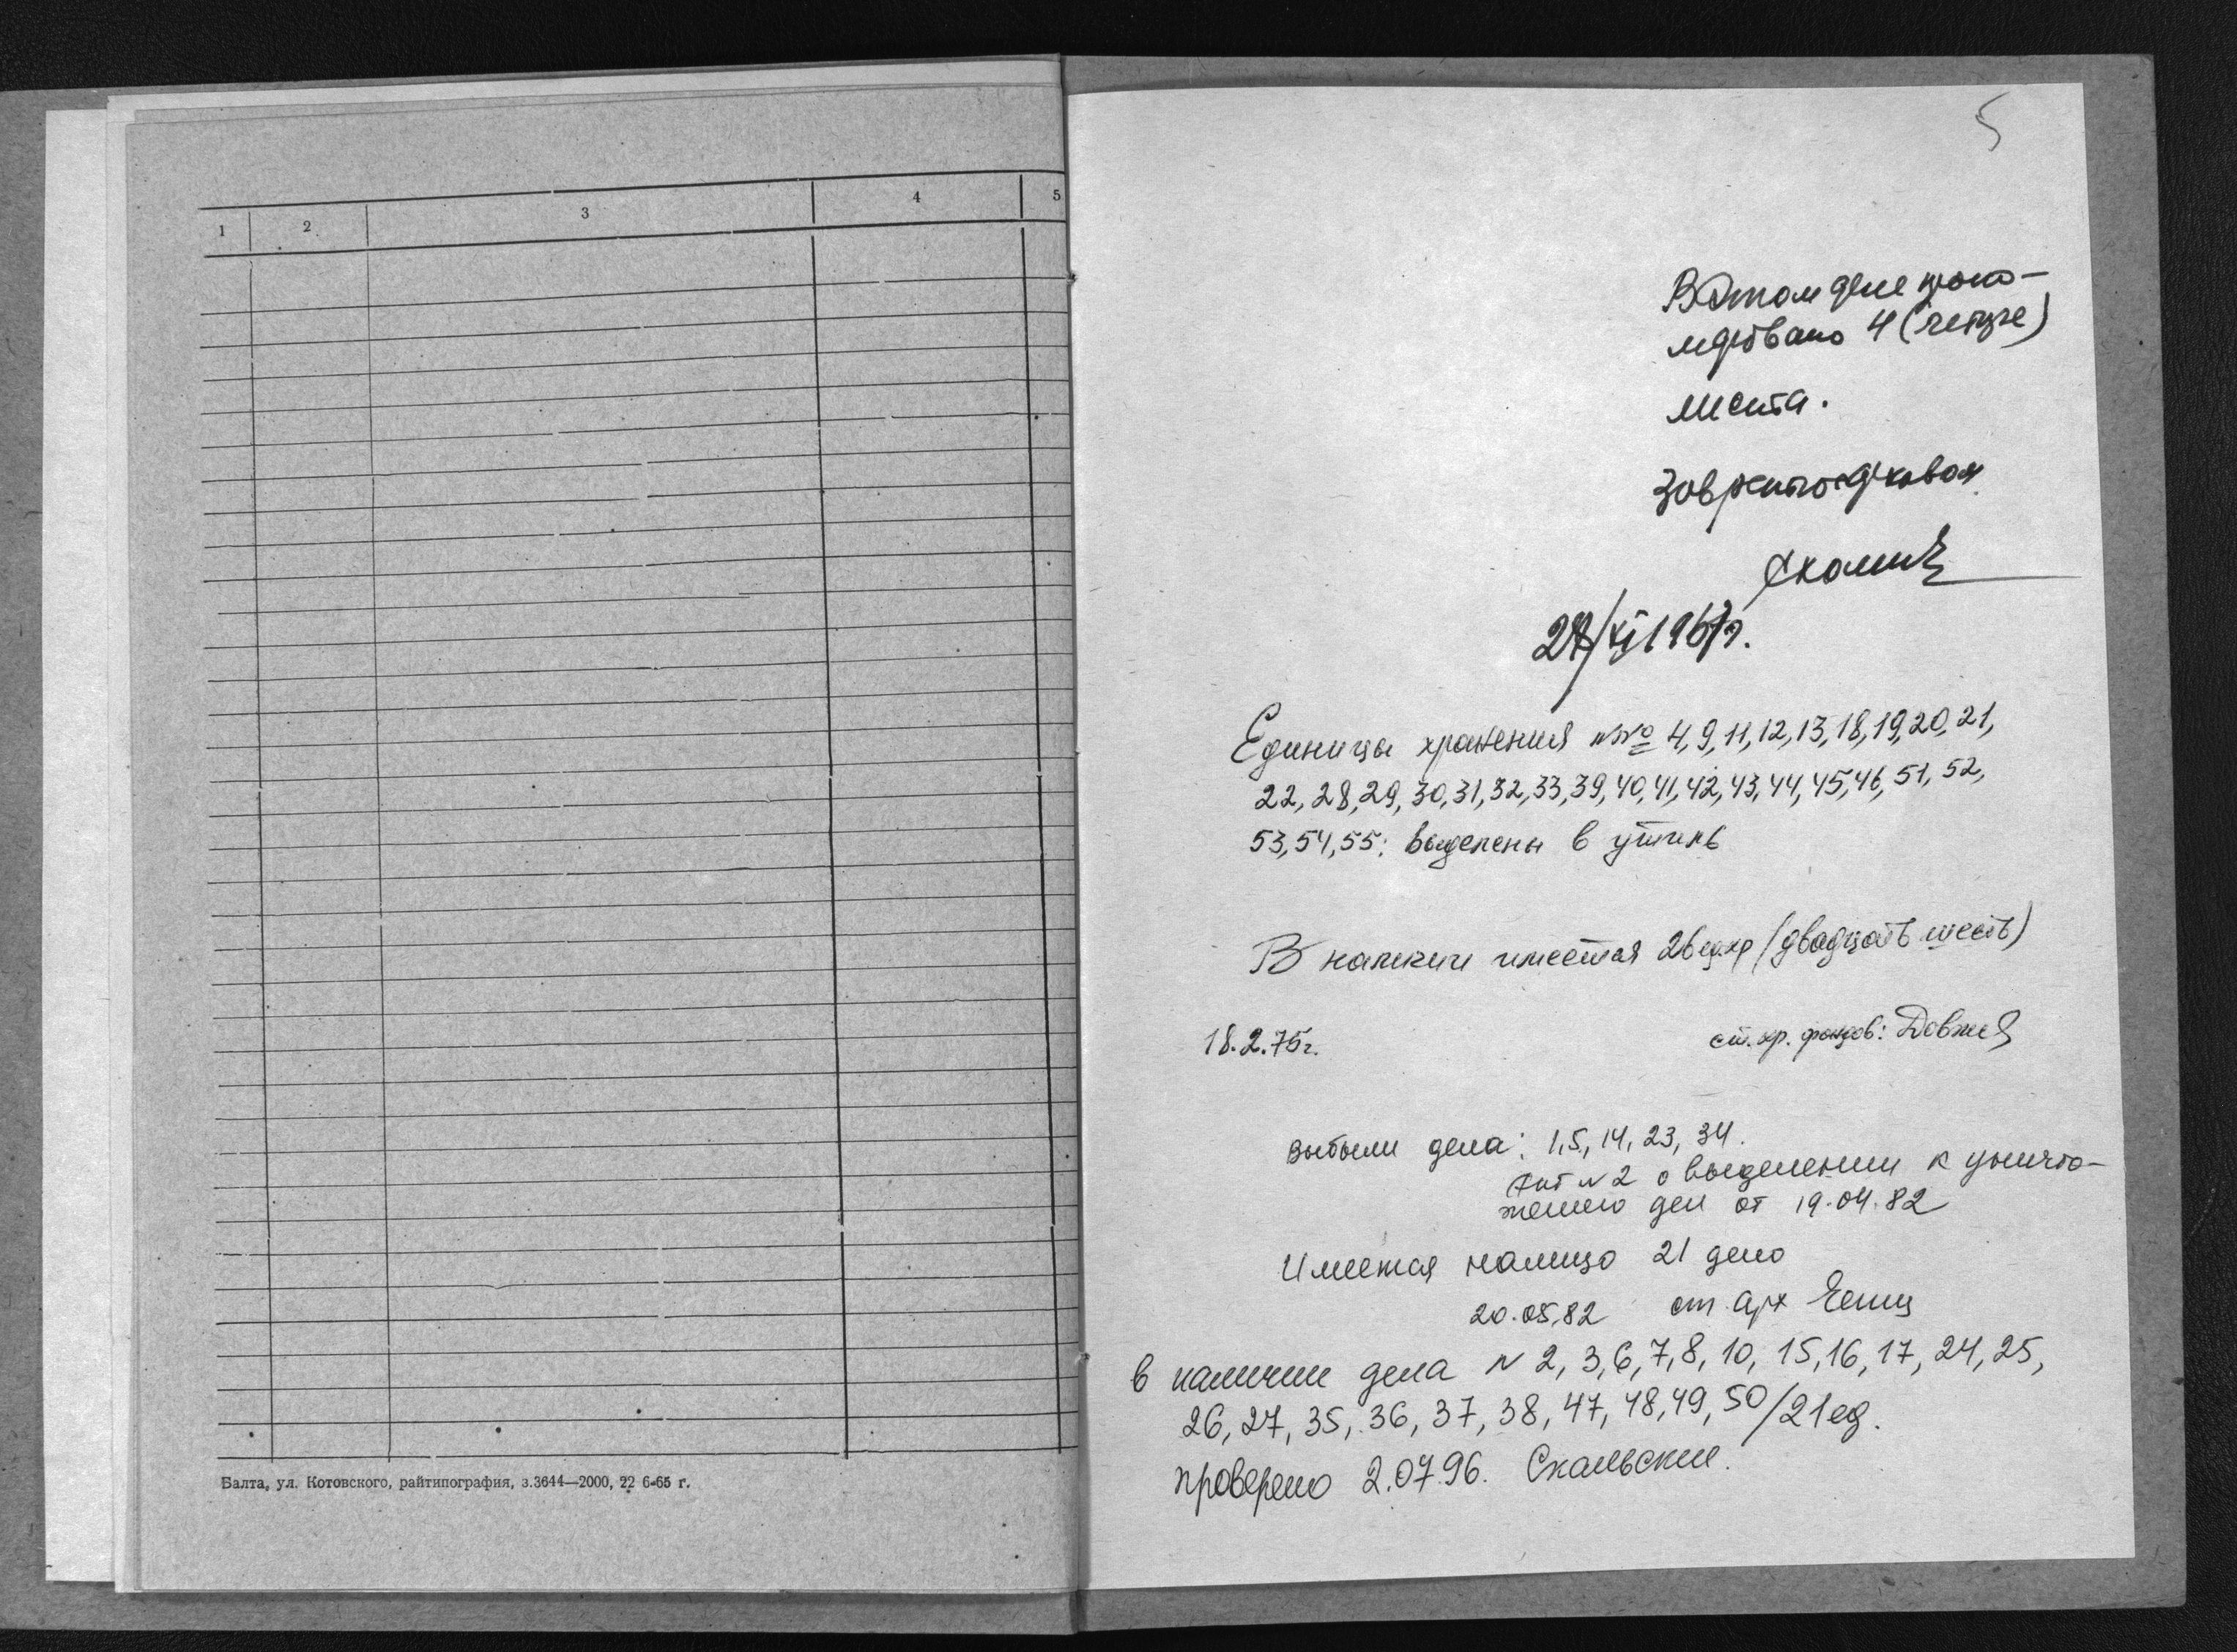 1 2 3 4 5
Балта, ул. Котовского, райтипография, з.3644—2000, 22 6-65 г.
5
В этом деле прону-
меровано 4 (четыре)
листа.
28/XI 1967г.
Единицы хранения №№ 4, 9, 11, 12, 13, 18, 19, 20, 21,
22, 28, 29, 30, 31, 32, 33, 39, 40, 41, 42, 43, 44, 45, 46, 51, 52,
53, 54, 55: выделены в утиль
В наличии имеется 26 ед.хр (двадцать шесть)
18.2.75г.
ст. хр. фондов:
Выбыли дела: 1, 5, 14, 23, 34.
Акт № 2 о выделении к уничто-
жению дел от 19.04.82
Имеется налицо 21 дело
20.05.82 ст. арх
в наличии дела N 2, 3, 6, 7, 8, 10, 15, 16, 17, 24, 25,
26, 27, 35, 36, 37, 38, 47, 48, 49, 50 / 21 ед.
проверено 2.07.96. Скальский.